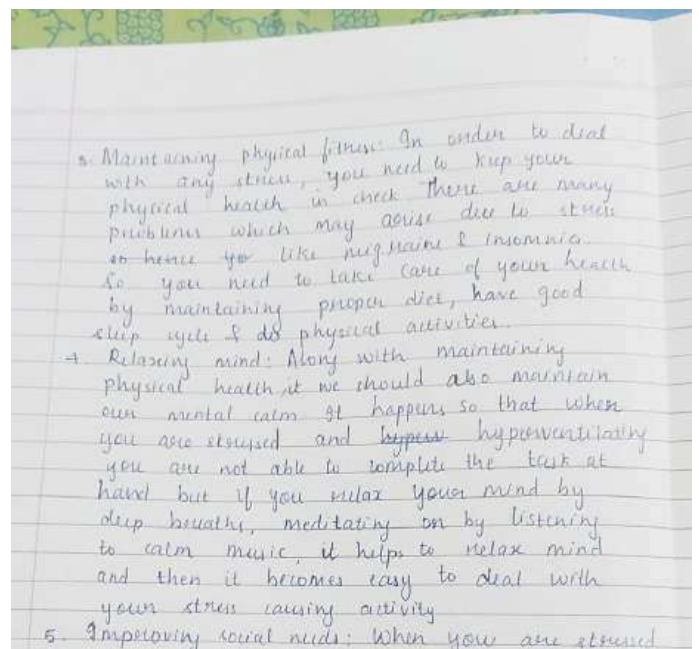 3. Maintaining physical fitness: In order to deal
with any stress, you need to keep your
physical health in check There are many
problems which may arise due to stress
so hence yo like migraine & insomnia.
So you need to take care of your health
by maintaining proper diet, have good
sleep cycle & do physical activities.
4. Relaxing mind: Along with maintaining
physical health, it we should also maintain
our mental calm It happens so that when
you are stressed and hyperventilating
you are not able to complete the task at
hand but if you relax your mind by
deep breaths, meditating or by listening
to calm music, it helps to relax mind
and then it becomes easy to deal with
your stress causing activity
5. Improving social needs: When you are stressed